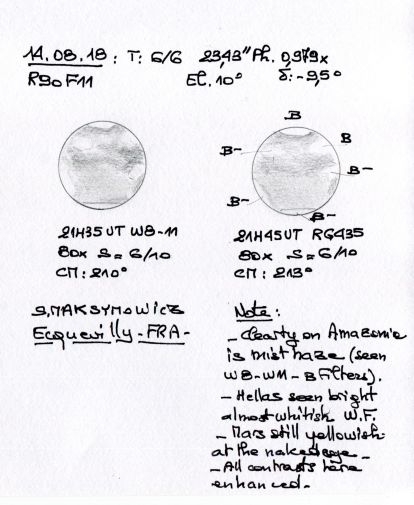 14.08.18 : T: 6/6 23,43" Ph. 0,979x
R90F11 El. 10° δ: -9,5°
B
B
B-
B-
B-
B-
21H35UT W8-11
80x S=6/10
CM: 210°
21H45UT RG435
80x S=6/10
CM: 213°
S.MAKSYMOWICZ
Ecquevilly-FRA-
Note:
- Clearty on Amazonie
is mist haze (seen
W8-W11-B Filters).
- Hellas seen bright
almost whitish W.F.
- Mars still yellowish
at the naked eye -
- All contrasts here
enhanced -